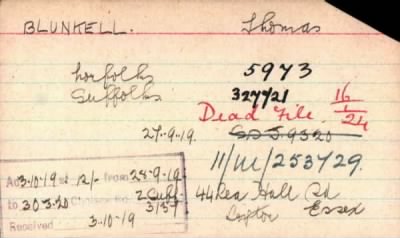 BLUNKELL. Thomas
Norfolks 5973
Suffolks 327721
Dead File 16/1/24
27-9-19.
11/M/253429.
3-10-19 at 12/- from 28-9-19
to 30.3.20 2 Suff
3/57
Received 3-10-19
44 Lea Hall Rd
Leyton Essex